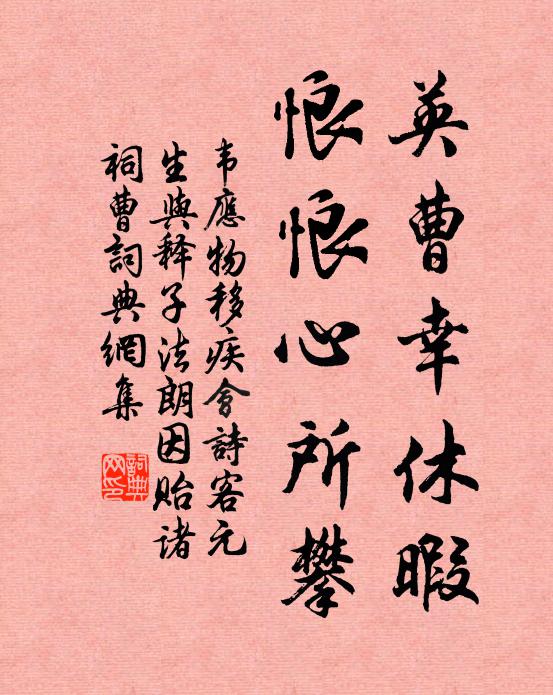 英曹幸休暇
恨恨心所攀
韦應物移疾會詩客元
生與释子法朗因貽諸
祠曹詞典網集
詞典网印